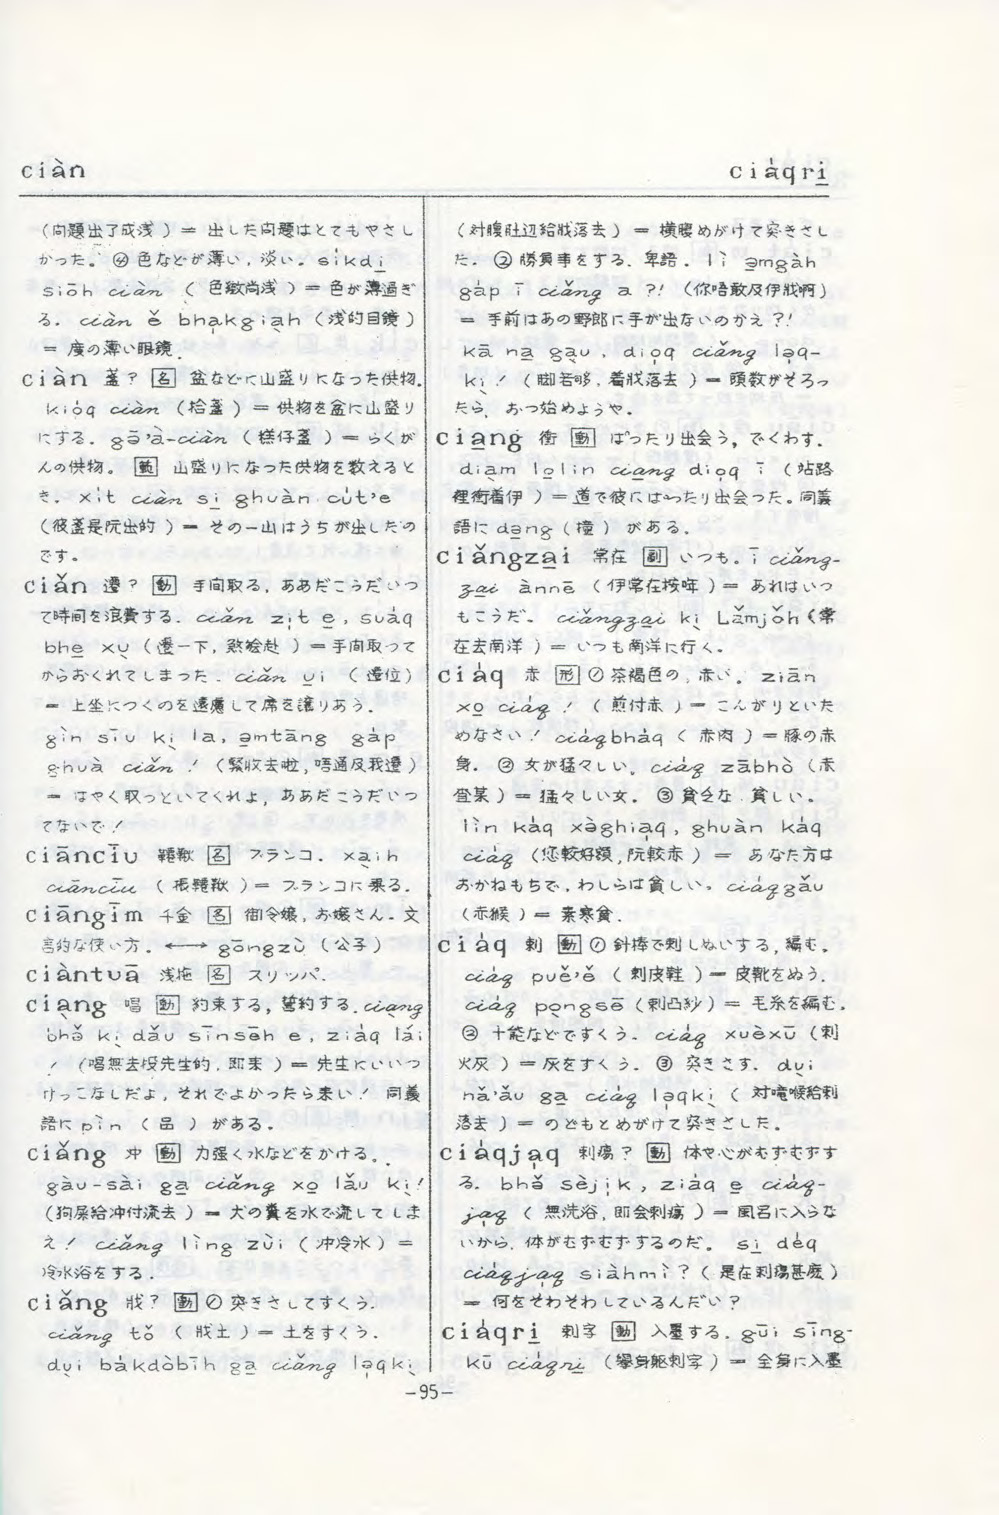 ciàn
ciáqri̱
(问題出了成浅) = 出した問題はとてもやさし
かった。④ 色などが薄い, 淡い. sikdi
siōh ciàn (色緻尚浅) = 色が薄過ぎ
る. ciàn ě bhakgiah (浅的目鏡)
= 度の薄い眼鏡.
ciàn 盖? 名 盆などに山盛りになった供物.
kióq ciàn (拾盖) = 供物を盆に山盛り
にする. gə̄'à-ciàn (糕仔盖) = らくが
んの供物。 数 山盛りになった供物を数えると
き. xit ciàn si̱ ghuàn cut'e
(彼盖是阮出的) = その一山はうちが出したの
です.
ciǎn 遷? 動 手间取る, ああだこうだいっ
て時間を浪費する. ciǎn zit e̱, suáq
bhe̱ xu̱ (遷一下, 煞赴) = 手间取って
からおくれてしまった. ciǎn ui (遷位)
= 上坐につくのを遠慮して席を譲りあう.
gìn siu ki la, əmtāng gáp
ghuà ciǎn ! (緊收去啦, 唔通及我遷)
= はやく取っといてくれよ, ああだこうだいっ
てないで!
ciānciū 韆鞦 名 ブランコ. xaih
ciānciū (韆鞦) = ブランコに乗る.
ciāngim 千金 名 御令嬢, お嬢さん. 文
言的な使い方. ←→ gōngzù (公子)
ciàntuā 浅拖 名 スリッパ.
ciang 唱 動 約束する, 誓約する. ciang
bhə̌ ki dǎu sīnsēh e, ziáq lái
! (唱無去投先生的, 即来) = 先生にいいつ
けっこなしだよ, それでよかったら来い! 同義
語に pìn (品) がある.
ciǎng 冲 動 力强く水などをかける.
gàu-sài ga̱ ciǎng xo̱ lǎu ki!
(狗屎給冲付流去) = 犬の糞を水で流してしま
え! ciǎng lìng zùi (冲冷水) =
冷水浴をする.
ciǎng 戕? 動 ① 突きさしてすくう.
ciǎng tǒ (戕土) = 土をすくう.
dui bàkdòbīh ga̱ ciǎng ləqki
(対腹肚辺給戕落去) = 横腹めがけて突きさし
た. ② 勝負事をする. 卑語. lì əmgàh
gáp ī ciǎng a ?! (你唔敢及伊戕啊)
= 手前はあの野郎に手が出ないのかえ ?!
kā na̱ gau, dioq ciǎng ləq-
ki ! (脚若够, 着戕落去) = 頭数がそろっ
たら, おっ始めようや.
ciang 衝 動 ばったり出会う, でくわす.
diàm lolin ciang dioq ī (站路
裡衝着伊) = 道で彼にばったり出会った. 同義
語に dang (撞) がある.
ciǎngzai 常在 副 いつも. ī ciǎng-
zai ànnē (伊常在按哖) = あれはいつ
もこうだ. ciǎngzai ki Lǎmjǒh (常
在去南洋) = いつも南洋に行く.
ciáq 赤 形 ① 茶褐色の, 赤い. ziān
xo̱ ciáq ! (煎付赤) = こんがりといた
めなさい! ciáqbháq (赤肉) = 豚の赤
身. ② 女が猛々しい. ciáq zābhò (赤
査某) = 猛々しい女. ③ 貧乏な, 貧しい.
lìn káq xə̀ghiaq, ghuàn káq
ciáq (恁較好額, 阮較赤) = あなた方は
おかねもちで, わしらは貧しい. ciáqgǎu
(赤猴) = 素寒貧.
ciáq 刺 動 ① 針棒で刺しぬいする, 編む.
ciáq puě'ě (刺皮鞋) = 皮靴をぬう.
ciáq pongsē (刺凸紗) = 毛糸を編む.
② 十能などですくう. ciáq xuèxū (刺
火灰) = 灰をすくう. ③ 突きさす. dui
nǎ'ǎu ga̱ ciáq ləqki (対嚨喉給刺
落去) = のどもとめがけて突きさした.
ciáqjaq 刺瘍? 動 体や心がむずむずす
る. bhə̌ sèjik, ziáq e̱ ciáq-
jaq (無洗浴, 即会刺瘍) = 風呂に入らな
いから, 体がむずむずするのだ。 si̱ déq
ciáqjaq siàhmì? (是在刺瘍甚麼)
= 何をそわそわしているんだい?
ciáqri̱ 刺字 動 入墨する. gūi sīng-
kū ciáqri̱ (擧身躯刺字) = 全身に入墨
-95-